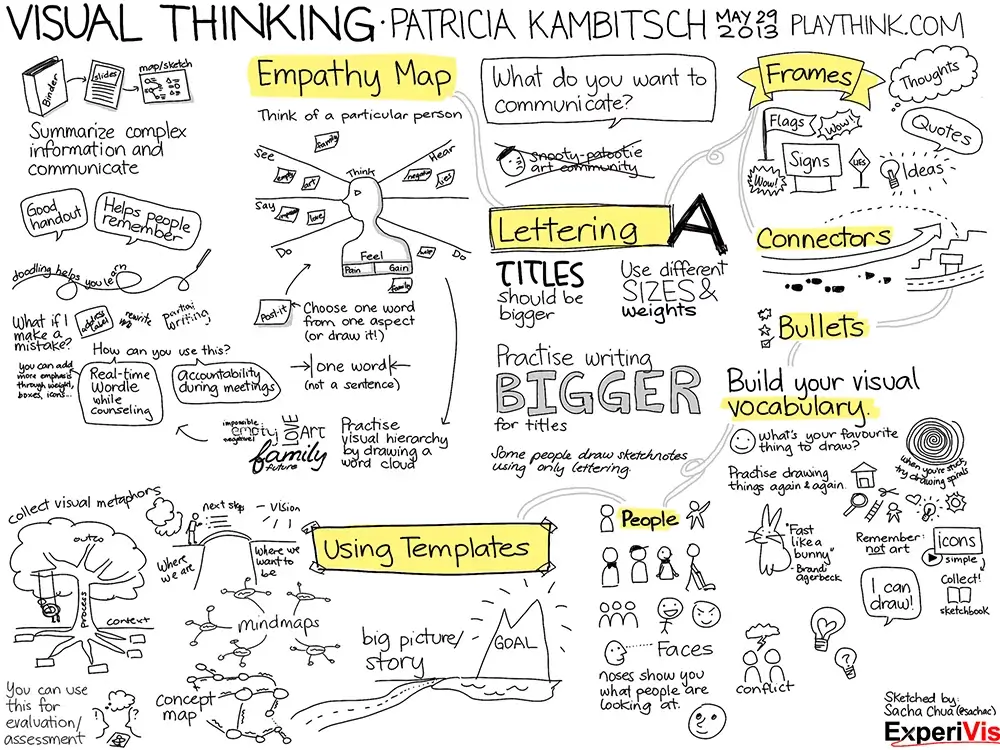 VISUAL THINKING · PATRICIA KAMBITSCH MAY 29 2013 PLAYTHINK.COM
Binder
slides
map/sketch
Summarize complex
information and
communicate
Good
handout
Helps people
remember
doodling helps you learn
What if I
make a
mistake?
address
label
rewrite
partial
writing
you can add
more emphasis
through weight,
boxes, icons...
How can you use this?
Real-time
Wordle
while
counseling
accountability
during meetings
Empathy Map
Think of a particular person
family
See
Think
Hear
empty
art
negative
lies
Say
love
Do
Do
Feel
Pain
Gain
family
Post-it
Choose one word
from one aspect
(or draw it!)
one word
(not a sentence)
impossible
empty
negative!
LOVE
Art
family
future
Practise
visual hierarchy
by drawing a
word cloud
What do you want to
communicate?
snooty-patootie
art community
Lettering A
TITLES
should be
bigger
Use different
SIZES &
weights
Practise writing
BIGGER
for titles
Some people draw sketchnotes
using only lettering.
Frames
Thoughts
Flags
Wow!
Quotes
Signs
YES
Ideas
Wow!
Connectors
Bullets
Build your visual
vocabulary.
what's your favourite
thing to draw?
when you're stuck,
try drawing spirals
Practise drawing
things again & again.
"Fast
like a
bunny"
- Brandy
agerbeck
Remember:
not art
icons
simple
Collect!
sketchbook
I can
draw!
collect visual metaphors
outco
process
context
next step
VISION
Where
we are
Where we
want to
be
Using Templates
mindmaps
big picture/
story
GOAL
concept
map
You can use
this for
evaluation/
assessment
People
Faces
noses show you
what people are
looking at.
conflict
Sketched by:
Sacha Chua (@sachac)
ExperiVis